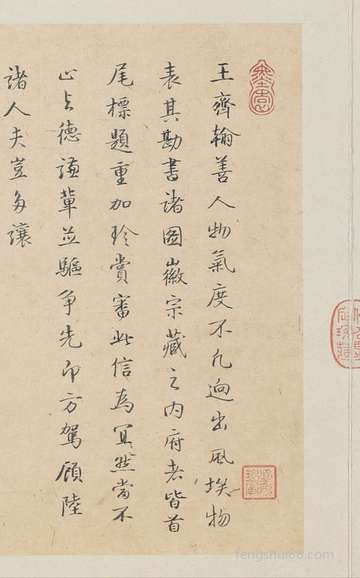 王齊翰善人物氣度不凡迥出風埃物
表其勘書諸圖徽宗藏之内府老皆首
尾標題重加珍賞審此信為冥然當不
止与德謙輩並驅争先而方駕顧陸
諸人夫豈多讓
fengshui88.com